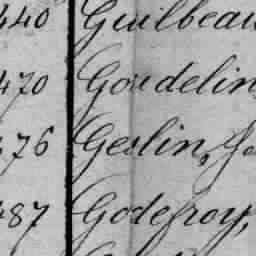 440 Guilbeau
470 Goudelin
476 Geslin, Je
487 Godefroy,